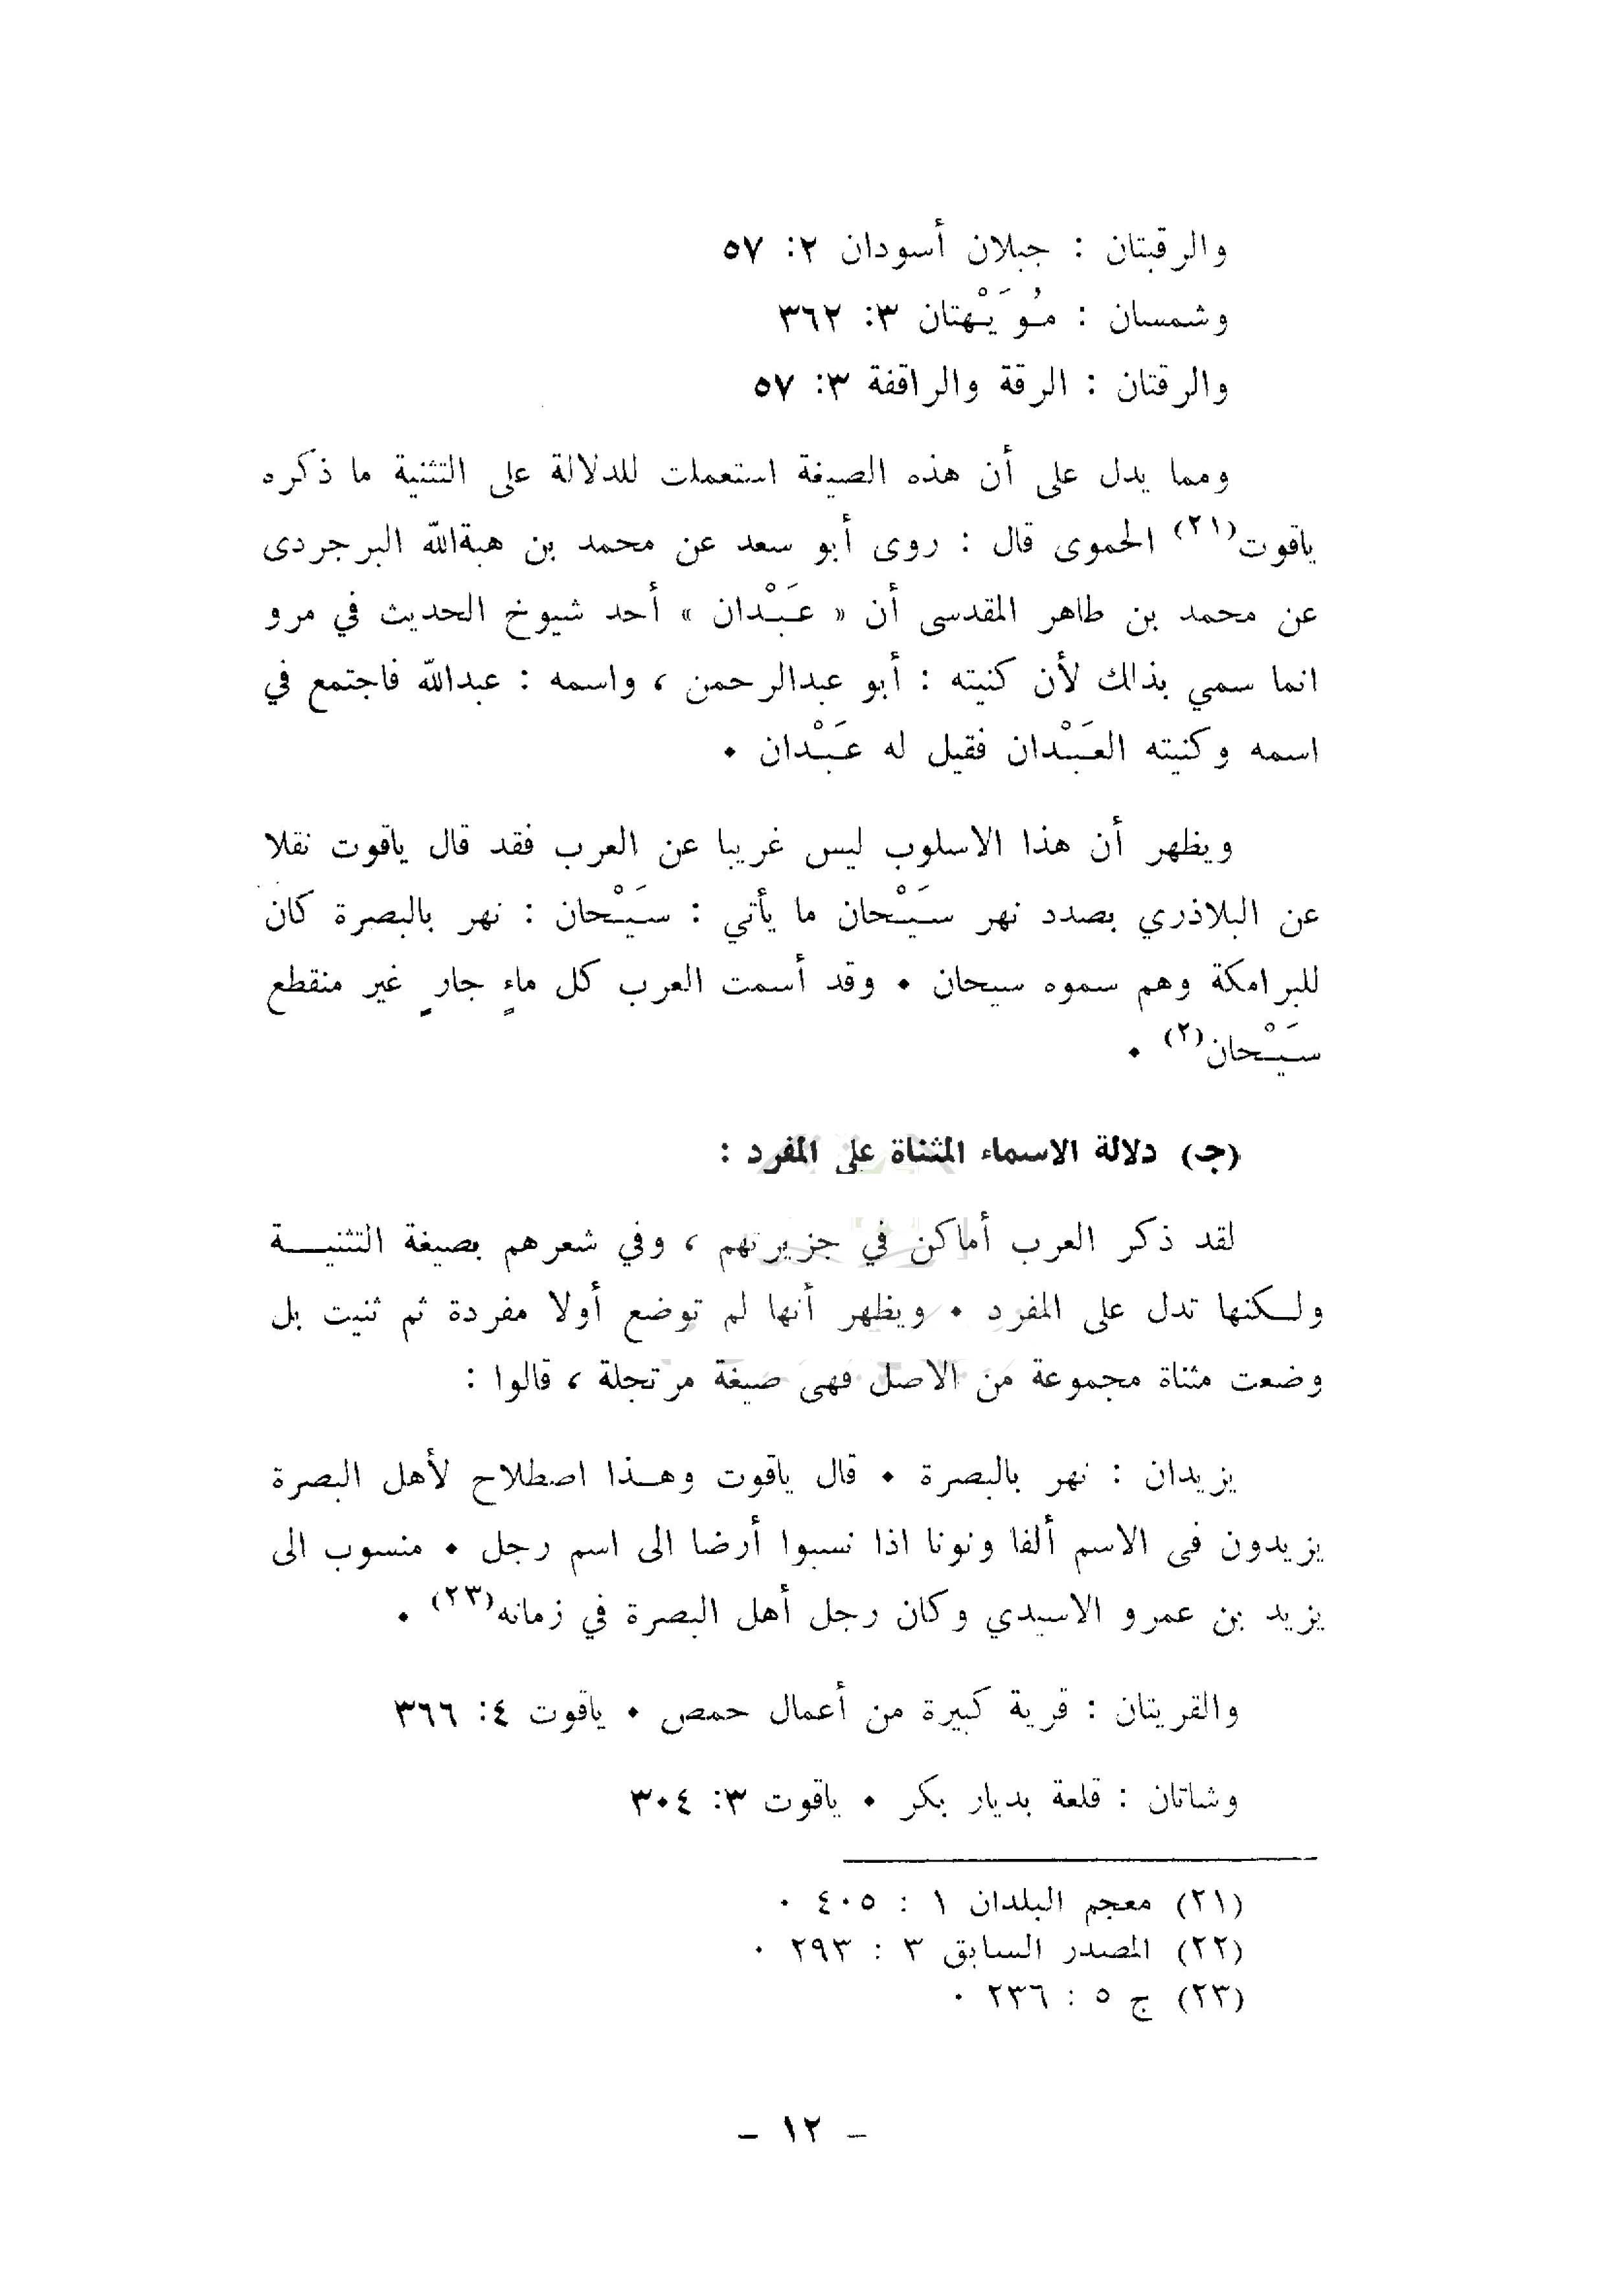 والرقبتان : جبلان أسودان ٢: ٥٧
وشمسان : مُوَيْهتان ٣: ٣٦٢
والرقتان : الرقة والراقفة ٣: ٥٧
ومما يدل على أن هذه الصيغة استعملت للدلالة على التثنية ما ذكره
ياقوت(٢١) الحموى قال : روى أبو سعد عن محمد بن هبةالله البرجردى
عن محمد بن طاهر المقدسى أن « عَبْدان » أحد شيوخ الحديث في مرو
انما سمي بذلك لأن كنيته : أبو عبدالرحمن ، واسمه : عبدالله فاجتمع في
اسمه وكنيته العَبْدان فقيل له عَبْدان ٠
ويظهر أن هذا الاسلوب ليس غريبا عن العرب فقد قال ياقوت نقلا
عن البلاذري بصدد نهر سَيْحان ما يأتي : سَيْحان : نهر بالبصرة كان
للبرامكة وهم سموه سيحان ٠ وقد أسمت العرب كل ماءٍ جارٍ غير منقطع
سَيْحان(٢) ٠
(جـ) دلالة الاسماء المثناة على المفرد :
لقد ذكر العرب أماكن في جزيرتهم ، وفي شعرهم بصيغة التثنيـــة
ولـكنها تدل على المفرد ٠ ويظهر أنها لم توضع أولا مفردة ثم ثنيت بل
وضعت مثناة مجموعة من الاصل فهى صيغة مرتجلة ، قالوا :
يزيدان : نهر بالبصرة ٠ قال ياقوت وهـذا اصطلاح لأهل البصرة
يزيدون فى الاسم ألفا ونونا اذا نسبوا أرضا الى اسم رجل ٠ منسوب الى
يزيد بن عمرو الاسيدي وكان رجل أهل البصرة في زمانه(٢٣) ٠
والقريتان : قرية كبيرة من أعمال حمص ٠ ياقوت ٤: ٣٦٦
وشاتان : قلعة بديار بكر ٠ ياقوت ٣: ٣٠٤
(٢١) معجم البلدان ١ : ٤٠٥ ٠
(٢٢) المصدر السابق ٣ : ٢٩٣ ٠
(٢٣) ج ٥ : ٢٣٦ ٠
- ١٢ -